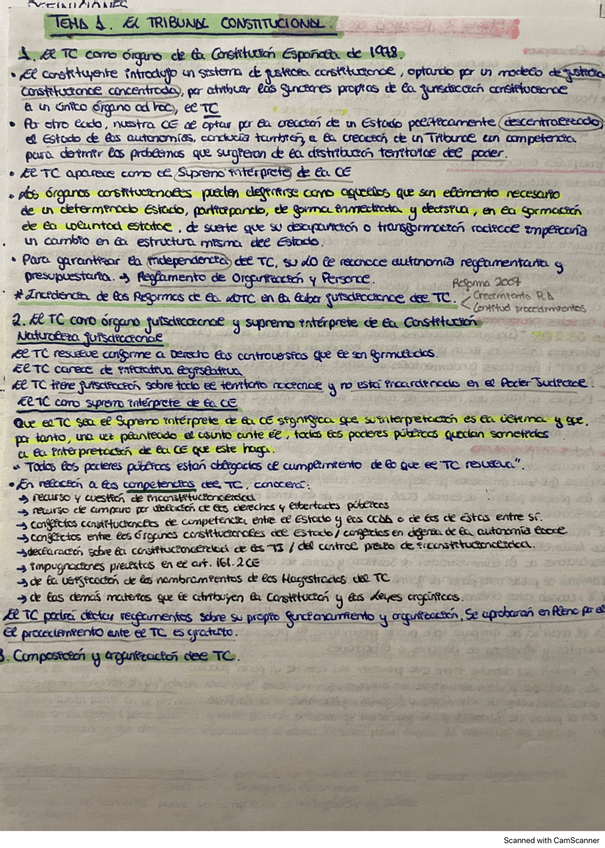 TEMA 1. EL TRIBUNAL CONSTITUCIONAL.
1. El TC como órgano de la Constitución Española de 1978.
• El constituyente introdujo un sistema de justicia constitucional, optando por un modelo de justicia
constitucional concentrada, por atribuir las funciones propias de la jurisdicción constitucional
a un único órgano ad hoc, el TC
• Por otro lado, nuestra CE al optar por la creación de un Estado políticamente descentralizado
el Estado de las autonomías, conducía también, a la creación de un Tribunal con competencia
para dirimir los problemas que surgieran de la distribución territorial del poder.
• El TC aparece como el Supremo intérprete de la CE
• Los órganos constitucionales pueden definirse como aquellos que son elemento necesario
de un determinado Estado, participando, de forma inmediata y decisiva, en la formación
de la voluntad estatal, de suerte que su desaparición o transformación radical implicaría
un cambio en la estructura misma del Estado.
• Para garantizar la independencia del TC, su LO le reconoce autonomía reglamentaria y
presupuestaria. → Reglamento de Organización y Personal.
Reforma 2007
* Incidencia de las Reformas de la LOTC en la labor jurisdiccional del TC.
Crecimiento RA
Lentitud procedimientos
2. El TC como órgano jurisdiccional y supremo intérprete de la Constitución
Naturaleza jurisdiccional
El TC resuelve conforme a Derecho las controversias que le son formuladas.
El TC carece de iniciativa legislativa
El TC tiene jurisdicción sobre todo el territorio nacional y no está incardinado en el Poder Judicial.
El TC como supremo intérprete de la CE
Que el TC sea el Supremo intérprete de la CE significa que su interpretación es la última y que,
por tanto, una vez planteado el asunto ante él, todos los poderes públicos quedan sometidos
a la interpretación de la CE que este haga.
"Todos los poderes públicos están obligados al cumplimiento de lo que el TC resuelva".
• En relación a las competencias del TC, conocerá:
→ recurso y cuestión de inconstitucionalidad
→ recurso de amparo por violación de los derechos y libertades públicos
→ conflictos constitucionales de competencia entre el Estado y las CCAA o de los de éstas entre sí.
→ conflictos entre los órganos constitucionales del Estado / conflictos en defensa de la autonomía local
→ declaración sobre la constitucionalidad de los TI / del control previo de inconstitucionalidad.
→ impugnaciones previstas en el art. 161.2 CE
→ de la verificación de los nombramientos de los Magistrados del TC
→ de las demás materias que le atribuyen la Constitución y las Leyes orgánicas.
El TC podrá dictar reglamentos sobre su propio funcionamiento y organización. Se aprobarán en Pleno por el
El procedimiento ante el TC es gratuito.
3. Composición y organización del TC.
Scanned with CamScanner